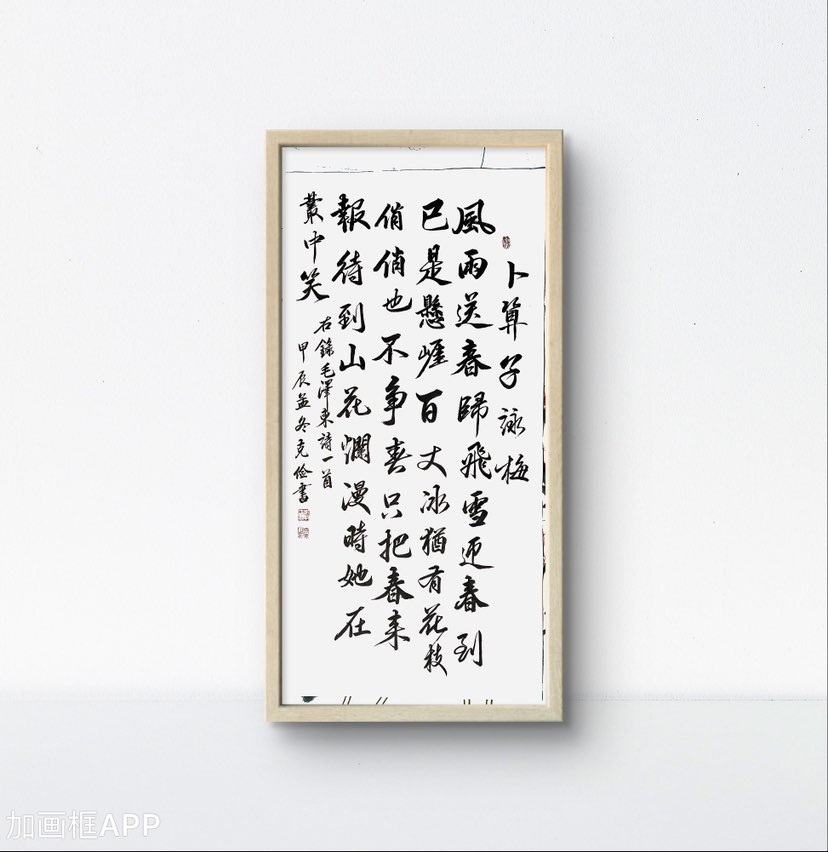 卜算子詠梅
風雨送春歸飛雪迎春到
已是懸崕百丈冰猶有花枝
俏俏也不争春只把春来
報待到山花爛漫時她在
叢中笑
右錄毛澤東詩一首
甲辰孟冬克俭書
加画框APP